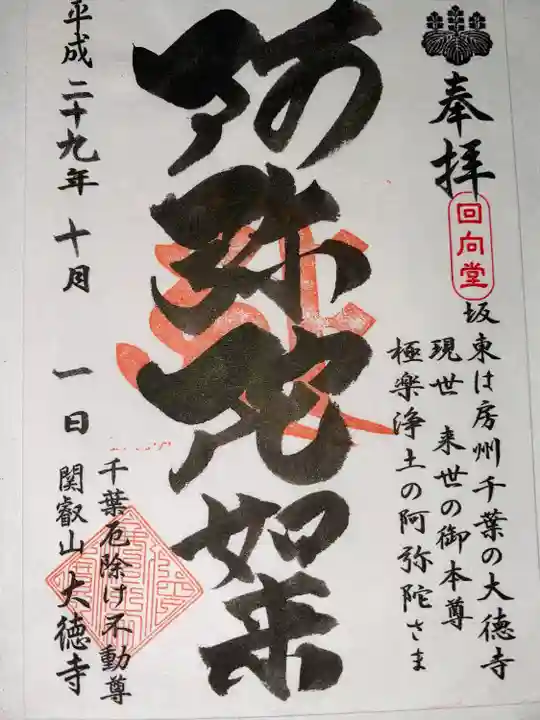 奉拝
回向堂
坂東は房州千葉の大徳寺
現世 来世の御本尊
極楽浄土の阿弥陀さま
阿弥陀如来
平成二十九年 十月 一日
千葉厄除け不動尊
関叡山 大徳寺